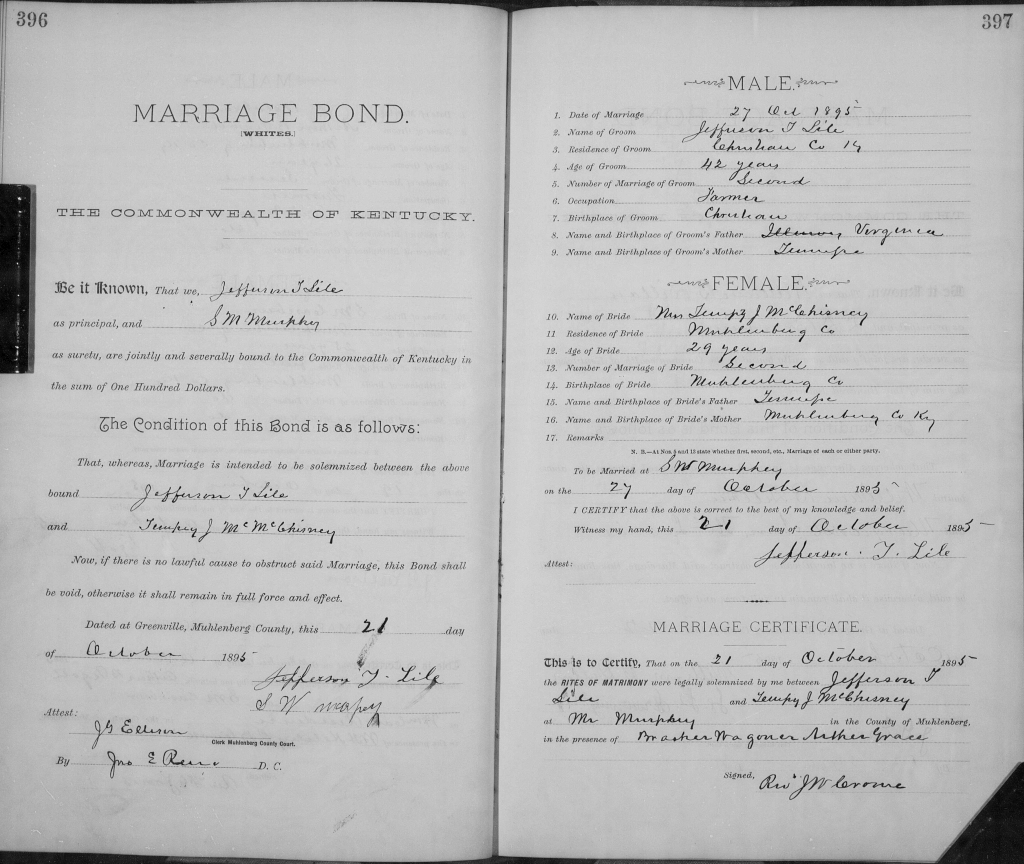 396
MARRIAGE BOND.
[WHITES.]
THE COMMONWEALTH OF KENTUCKY.
Be it Known, That we, Jefferson T Lile
as principal, and S M Murphey
as surety, are jointly and severally bound to the Commonwealth of Kentucky in
the sum of One Hundred Dollars.
The Condition of this Bond is as follows:
That, whereas, Marriage is intended to be solemnized between the above
bound Jefferson T Lile
and Tempy J Mc McChisney
Now, if there is no lawful cause to obstruct said Marriage, this Bond shall
be void, otherwise it shall remain in full force and effect.
Dated at Greenville, Muhlenberg County, this 21 day
of October 1895
Jefferson T. Lile
S W
Attest:
Clerk Muhlenberg County Court.
By Jno E Reno D. C.
397
MALE.
1. Date of Marriage 27 Oct 1895
2. Name of Groom Jefferson T Lile
3. Residence of Groom Christian Co Ky
4. Age of Groom 42 years
5. Number of Marriage of Groom Second
6. Occupation Farmer
7. Birthplace of Groom Christian
8. Name and Birthplace of Groom's Father Illinois Virginia
9. Name and Birthplace of Groom's Mother Tennessee
FEMALE.
10. Name of Bride Mrs Tempy J McChisney
11 Residence of Bride Muhlenburg Co
12. Age of Bride 29 years
13. Number of Marriage of Bride Second
14. Birthplace of Bride Muhlenburg Co
15. Name and Birthplace of Bride's Father Tennessee
16. Name and Birthplace of Bride's Mother Muhlenburg Co Ky
17. Remarks
N. B.—At Nos 5 and 13 state whether first, second, etc., Marriage of each or either party.
To be Married at S W Murphey
on the 27 day of October 1895
I CERTIFY that the above is correct to the best of my knowledge and belief.
Witness my hand, this 21 day of October 1895
Jefferson. T. Lile
Attest:
MARRIAGE CERTIFICATE.
This is to Certify, That on the 21 day of October 1895
the RITES OF MATRIMONY were legally solemnized by me between Jefferson T
Lile and Tempy J McChisney
at Mr Murphey in the County of Muhlenberg,
in the presence of Brasher Wagoner Arther Grace
Signed, Rev J W Crowe